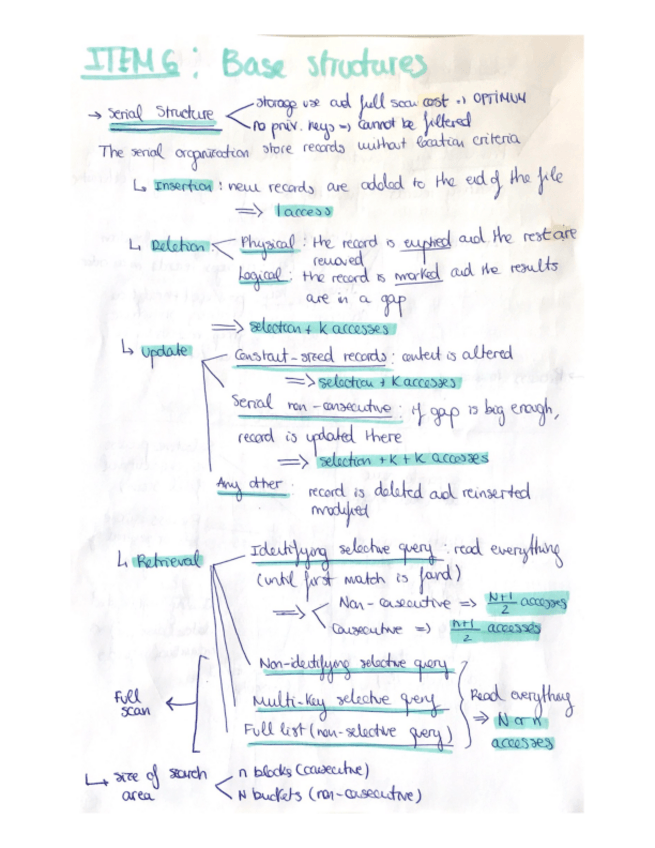 ITEM 6 : Base structures
→ Serial Structure
storage use and full scan cost => OPTIMUM
no priv. keys => cannot be filtered
The serial organization store records without location criteria
↳ Insertion : new records are added to the end of the file
=> 1 access
↳ Deletion : Physical : the record is emptied and the rest are
removed
Logical : the record is marked and the results
are in a gap
=> selection + k accesses
↳ Update
Constant-sized records : content is altered
=> selection + k accesses
Serial non-consecutive : if gap is big enough,
record is updated there
=> selection + k + k accesses
Any other : record is deleted and reinserted
modified
↳ Retrieval
Identifying selective query : read everything
(until first match is found)
=> Non-consecutive => N+1/2 accesses
Consecutive => n+1/2 accesses
Non-identifying selective query
Multi-key selective query
Full list (non-selective query)
Full scan
Read everything
=> N or n
accesses
↳ size of search area
n blocks (consecutive)
N buckets (non-consecutive)